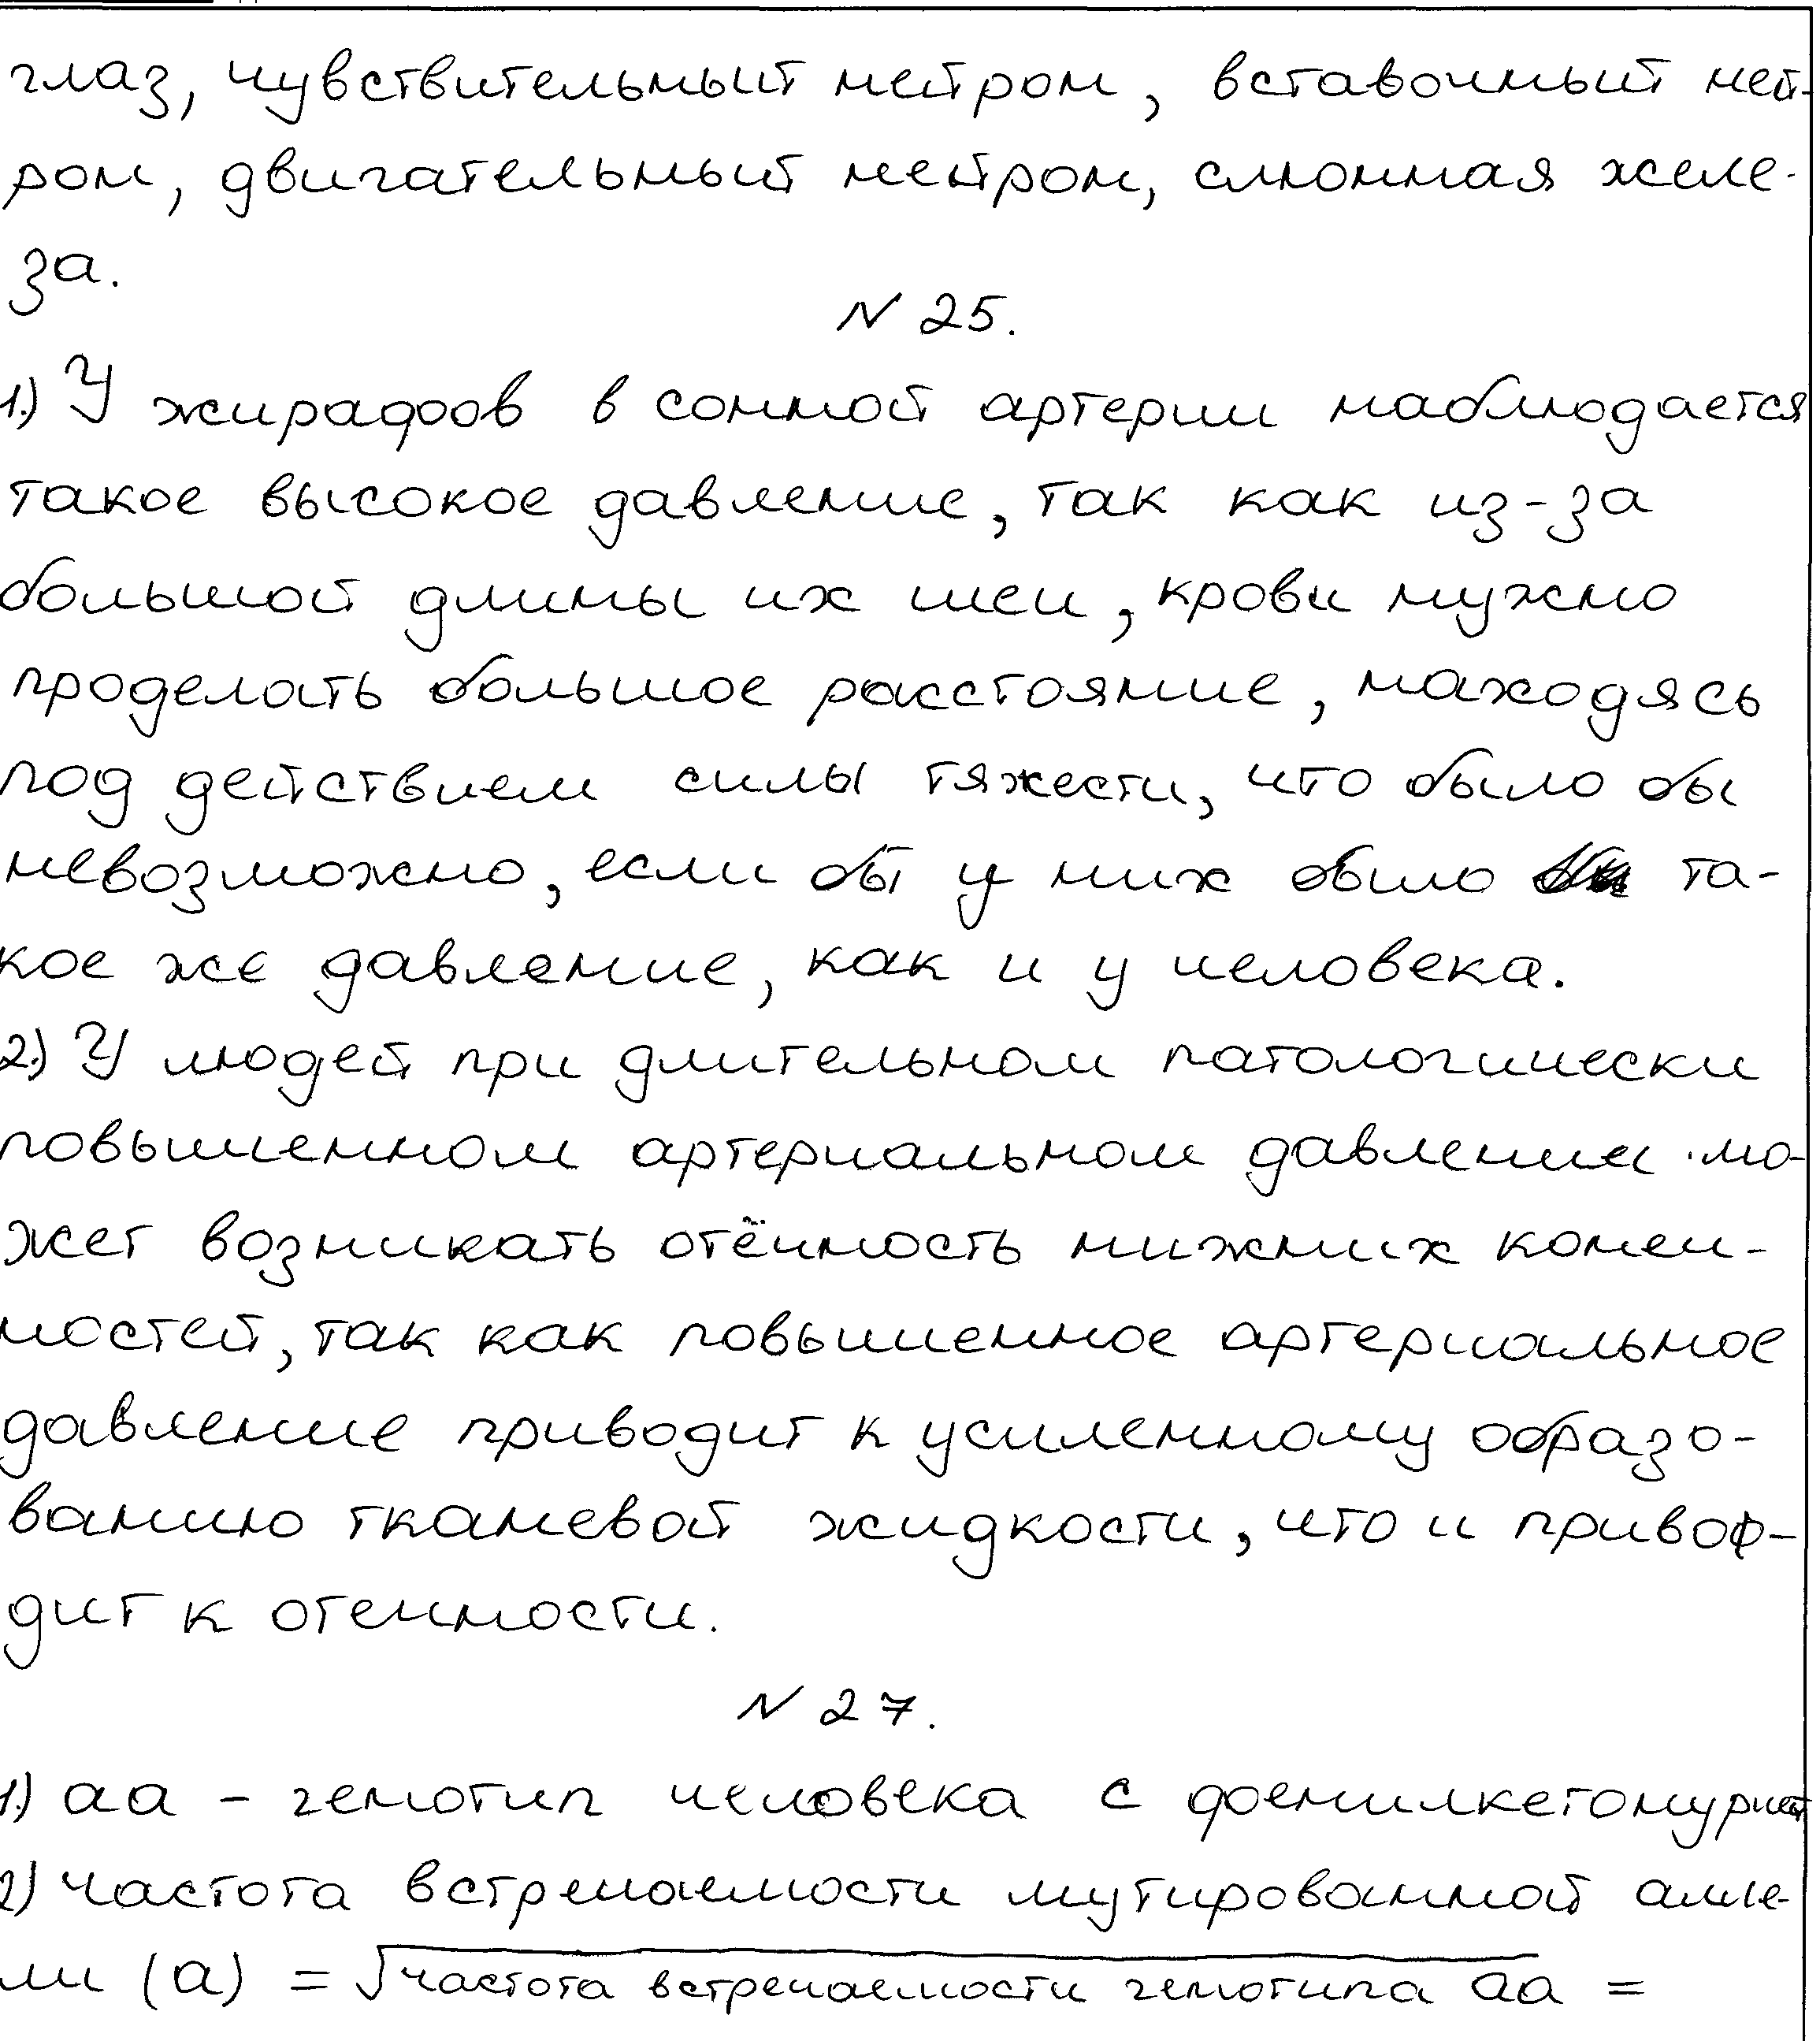 глаз, чувствительный нейрон, вставочный ней-
рон, двигательный нейрон, слюнная желе-
за.
N 25.
1.) У жирафов в сонной артерии наблюдается
такое высокое давление, так как из-за
большой длины их шеи, крови нужно
проделать большое расстояние, находясь
под действием силы тяжести, что было бы
невозможно, если бы у них было та-
кое же давление, как и у человека.
2.) У людей при длительном патологически
повышенном артериальном давлении мо-
жет возникать отёчность нижних конеч-
ностей, так как повышенное артериальное
давление приводит к усиленному образо-
ванию тканевой жидкости, что и привод-
дит к отечности.
N 27.
1.) aa - генотип человека с фенилкетонурией
2) частота встречаемости мутированной алле-
ли (a) = √частота встречаемости генотипа aa =